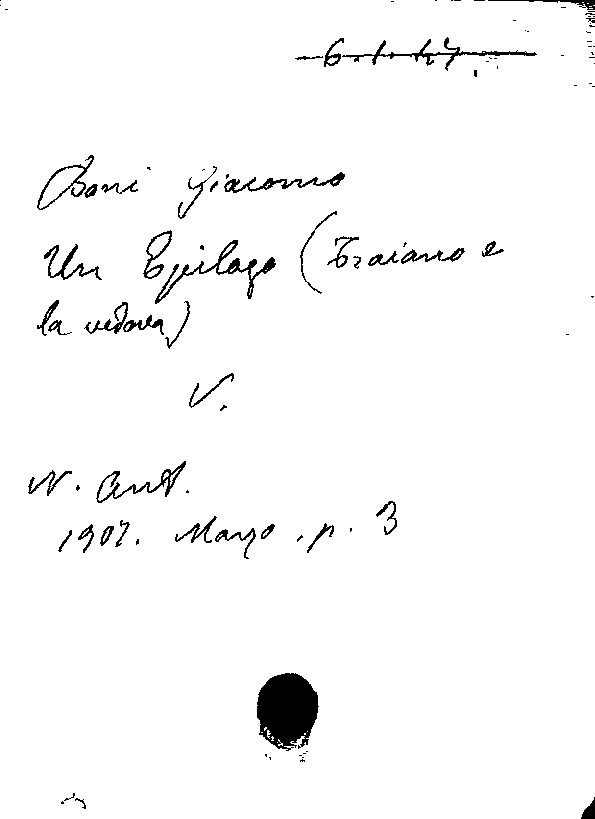 6.1.17.
Boni Giacomo
Un Epilogo (Traiano e
la vedova)
V.
N. Ant.
1907. Marzo. p. 3